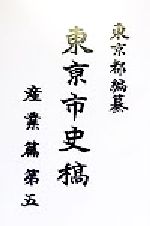 東京都編纂
東京市史稿
産業篇第五